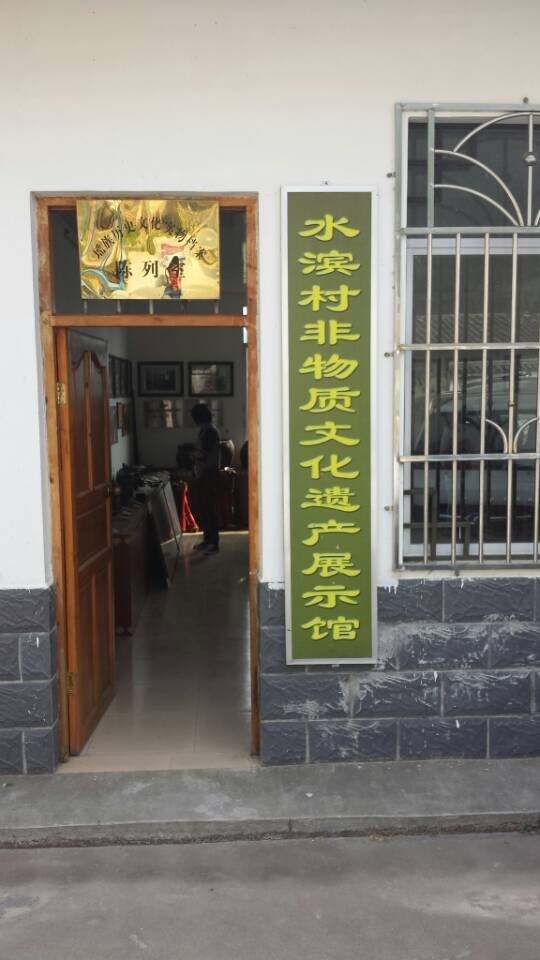 瑶族历史文化实物档案
陈列室
水滨村非物质文化遗产展示馆